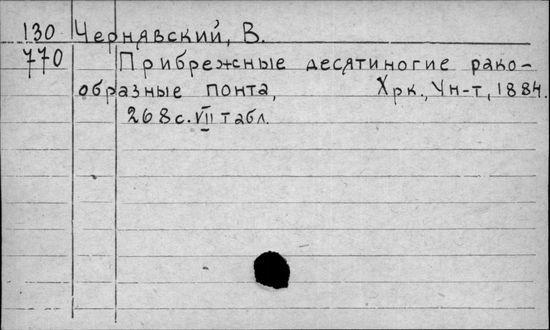 130 Чернявский, В.
770 Прибрежные десятиногие рако-
образные понта, Хрк., Ун-т, 1884.
268 с. VII табл.